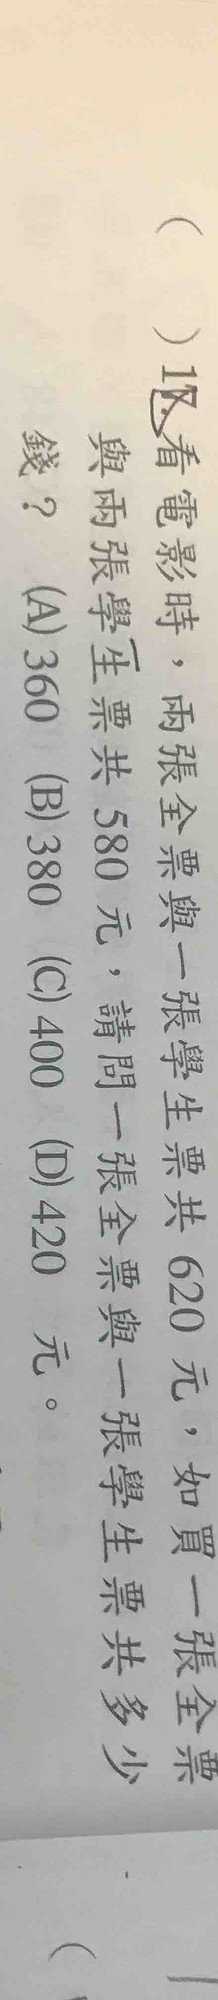 (　　)1看電影時，兩張全票與一張學生票共620元，如買一張全票
與兩張學生票共580元，請問一張全票與一張學生票共多少
錢？ (A)360 (B)380 (C)400 (D)420 元。
(